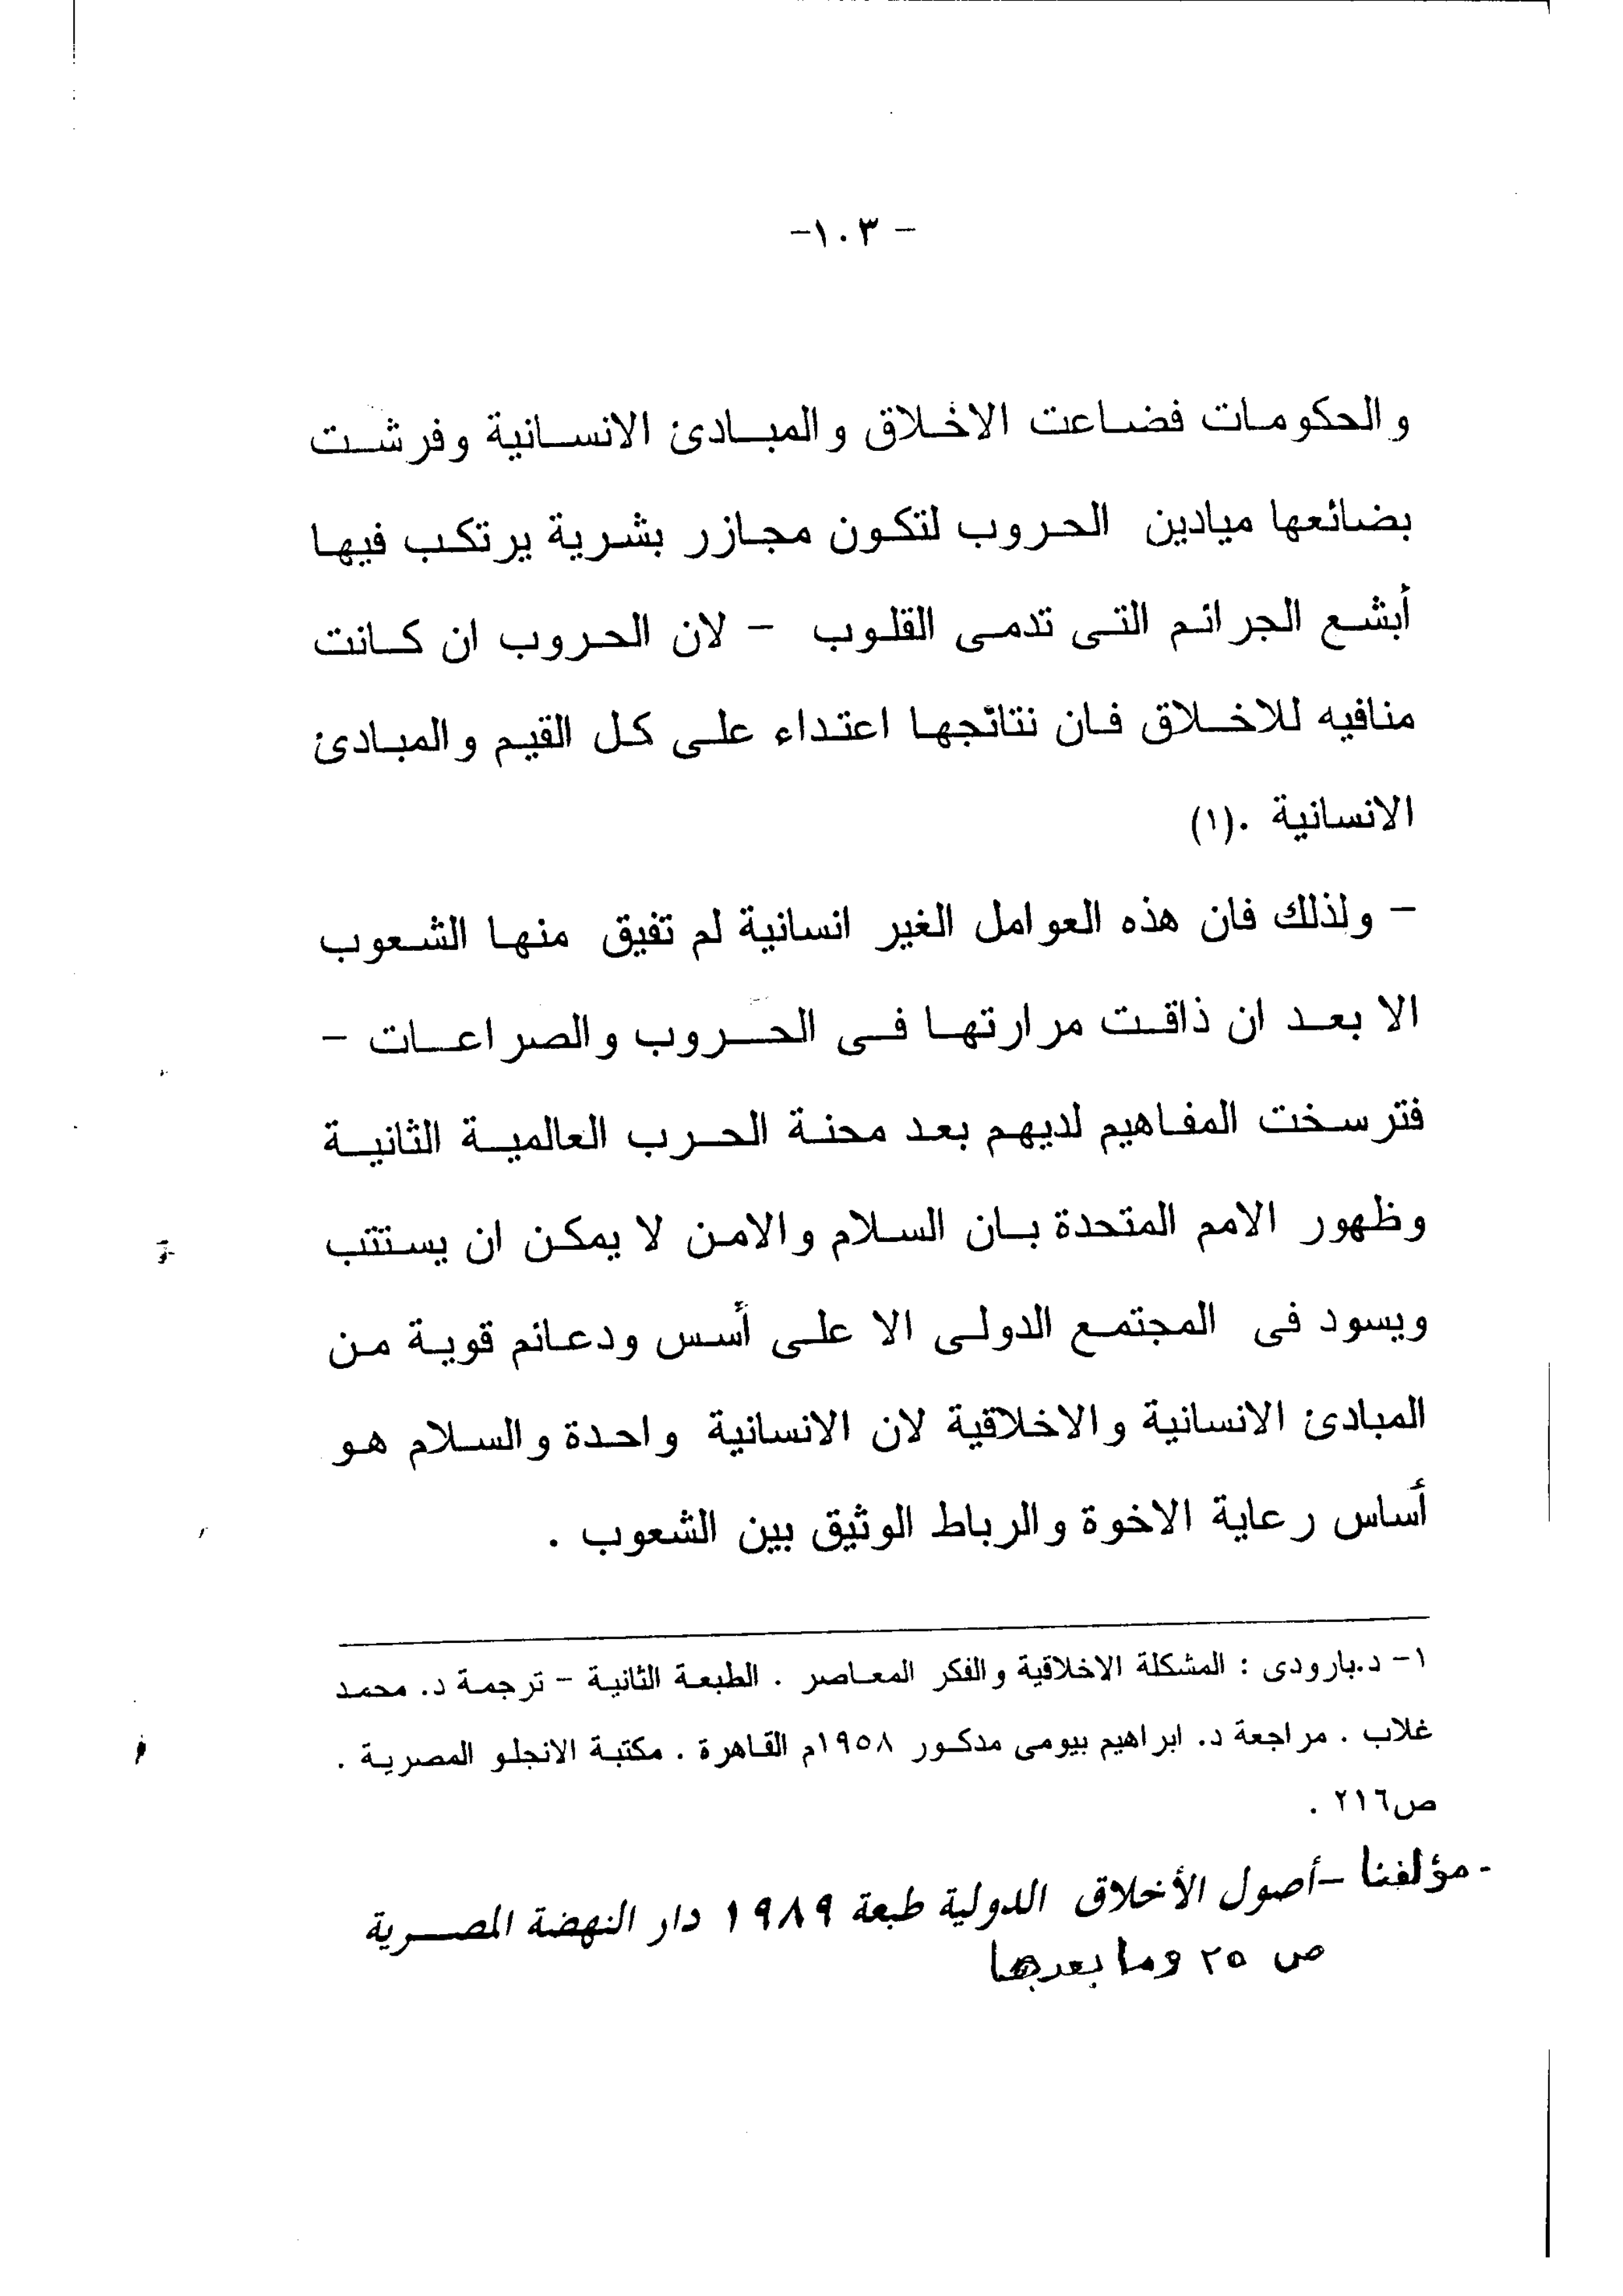 - ١٠٣-
والحكومات فضاعت الاخلاق والمبادئ الانسانية وفرشت
بضائعها ميادين الحروب لتكون مجازر بشرية يرتكب فيها
أبشع الجرائم التى تدمى القلوب - لان الحروب ان كانت
منافيه للاخلاق فان نتائجها اعتداء على كل القيم والمبادئ
الانسانية .(١)
- ولذلك فان هذه العوامل الغير انسانية لم تفيق منها الشعوب
الا بعد ان ذاقت مرارتها فى الحروب والصراعات -
فترسخت المفاهيم لديهم بعد محنة الحرب العالمية الثانية
وظهور الامم المتحدة بان السلام والامن لا يمكن ان يستتب
ويسود فى المجتمع الدولى الا على أسس ودعائم قوية من
المبادئ الانسانية والاخلاقية لان الانسانية واحدة والسلام هو
أساس رعاية الاخوة والرباط الوثيق بين الشعوب .
١- د.بارودى : المشكلة الاخلاقية والفكر المعاصر . الطبعة الثانية - ترجمة د. محمد
غلاب . مراجعة د. ابراهيم بيومى مدكور ١٩٥٨م القاهرة . مكتبة الانجلو المصرية .
ص٢١٦ .
- مؤلفنا - أصول الأخلاق الدولية طبعة ١٩٨٩ دار النهضة المصرية
ص ٢٥ وما بعدها